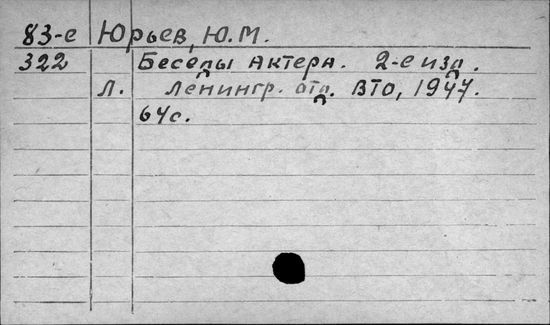 83-е Юрьев, Ю.М.
322 Беседы актера. 2-е изд.
Л. Ленингр. отд. ВТО, 1947.
64с.